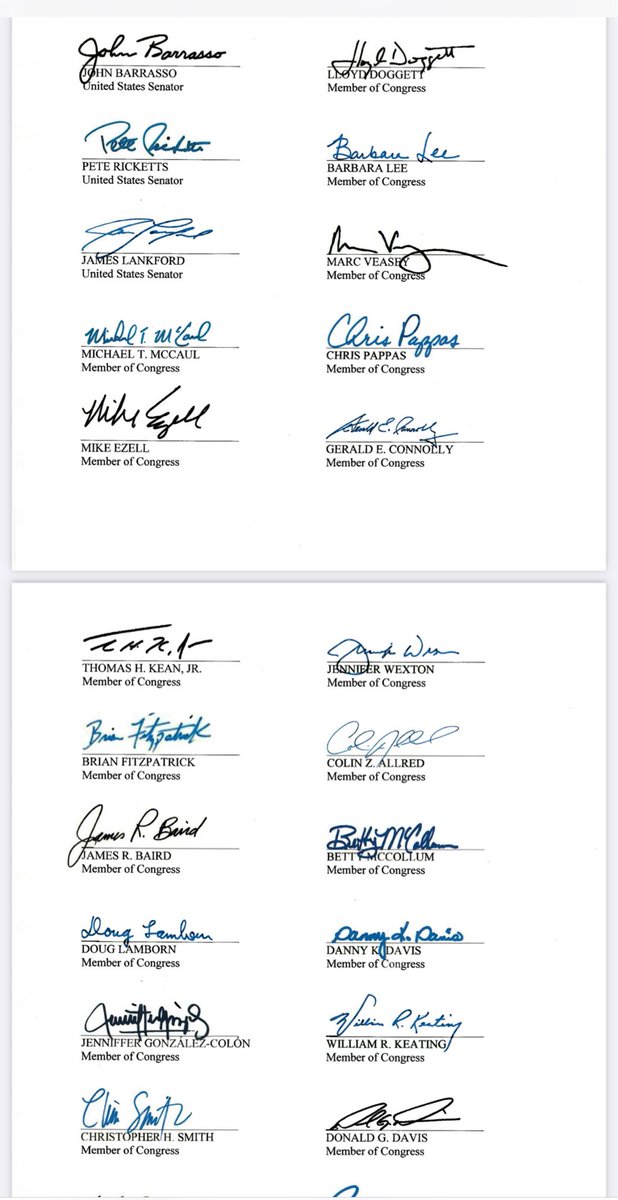 John Barrasso
JOHN BARRASSO
United States Senator
Lloyd Doggett
LLOYD DOGGETT
Member of Congress
Pete Ricketts
PETE RICKETTS
United States Senator
Barbara Lee
BARBARA LEE
Member of Congress
JAMES LANKFORD
United States Senator
MARC VEASEY
Member of Congress
Michael T. McCaul
MICHAEL T. MCCAUL
Member of Congress
Chris Pappas
CHRIS PAPPAS
Member of Congress
Mike Ezell
MIKE EZELL
Member of Congress
Gerald E. Connolly
GERALD E. CONNOLLY
Member of Congress
THOMAS H. KEAN, JR.
Member of Congress
JENNIFER WEXTON
Member of Congress
Brian Fitzpatrick
BRIAN FITZPATRICK
Member of Congress
COLIN Z. ALLRED
Member of Congress
James R. Baird
JAMES R. BAIRD
Member of Congress
Betty McCollum
BETTY MCCOLLUM
Member of Congress
Doug Lamborn
DOUG LAMBORN
Member of Congress
Danny K. Davis
DANNY K. DAVIS
Member of Congress
JENNIFFER GONZÁLEZ-COLÓN
Member of Congress
William R. Keating
WILLIAM R. KEATING
Member of Congress
Chris Smith
CHRISTOPHER H. SMITH
Member of Congress
DONALD G. DAVIS
Member of Congress